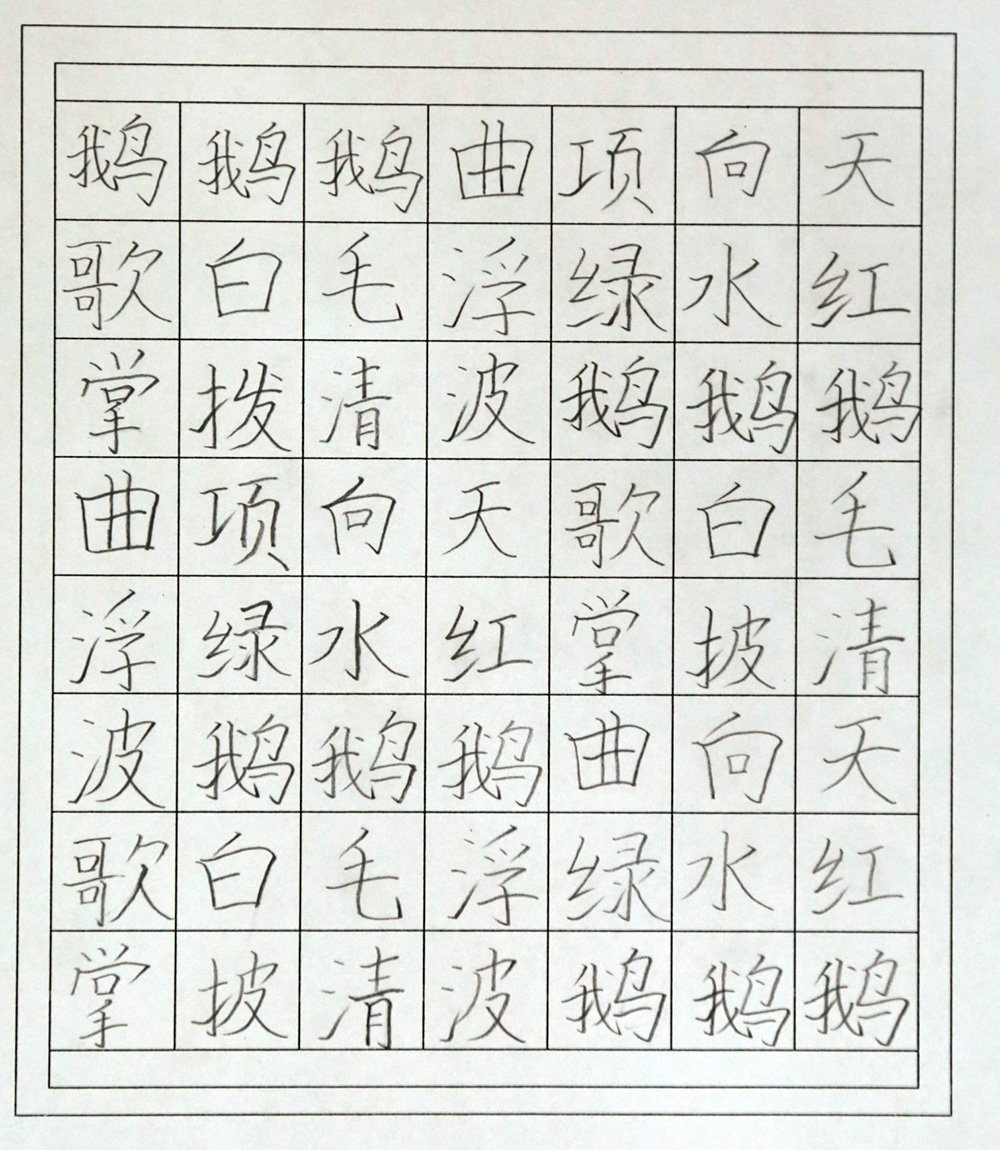 鹅鹅鹅曲项向天
歌白毛浮绿水红
掌拨清波鹅鹅鹅
曲项向天歌白毛
浮绿水红掌披清
波鹅鹅鹅曲向天
歌白毛浮绿水红
掌披清波鹅鹅鹅